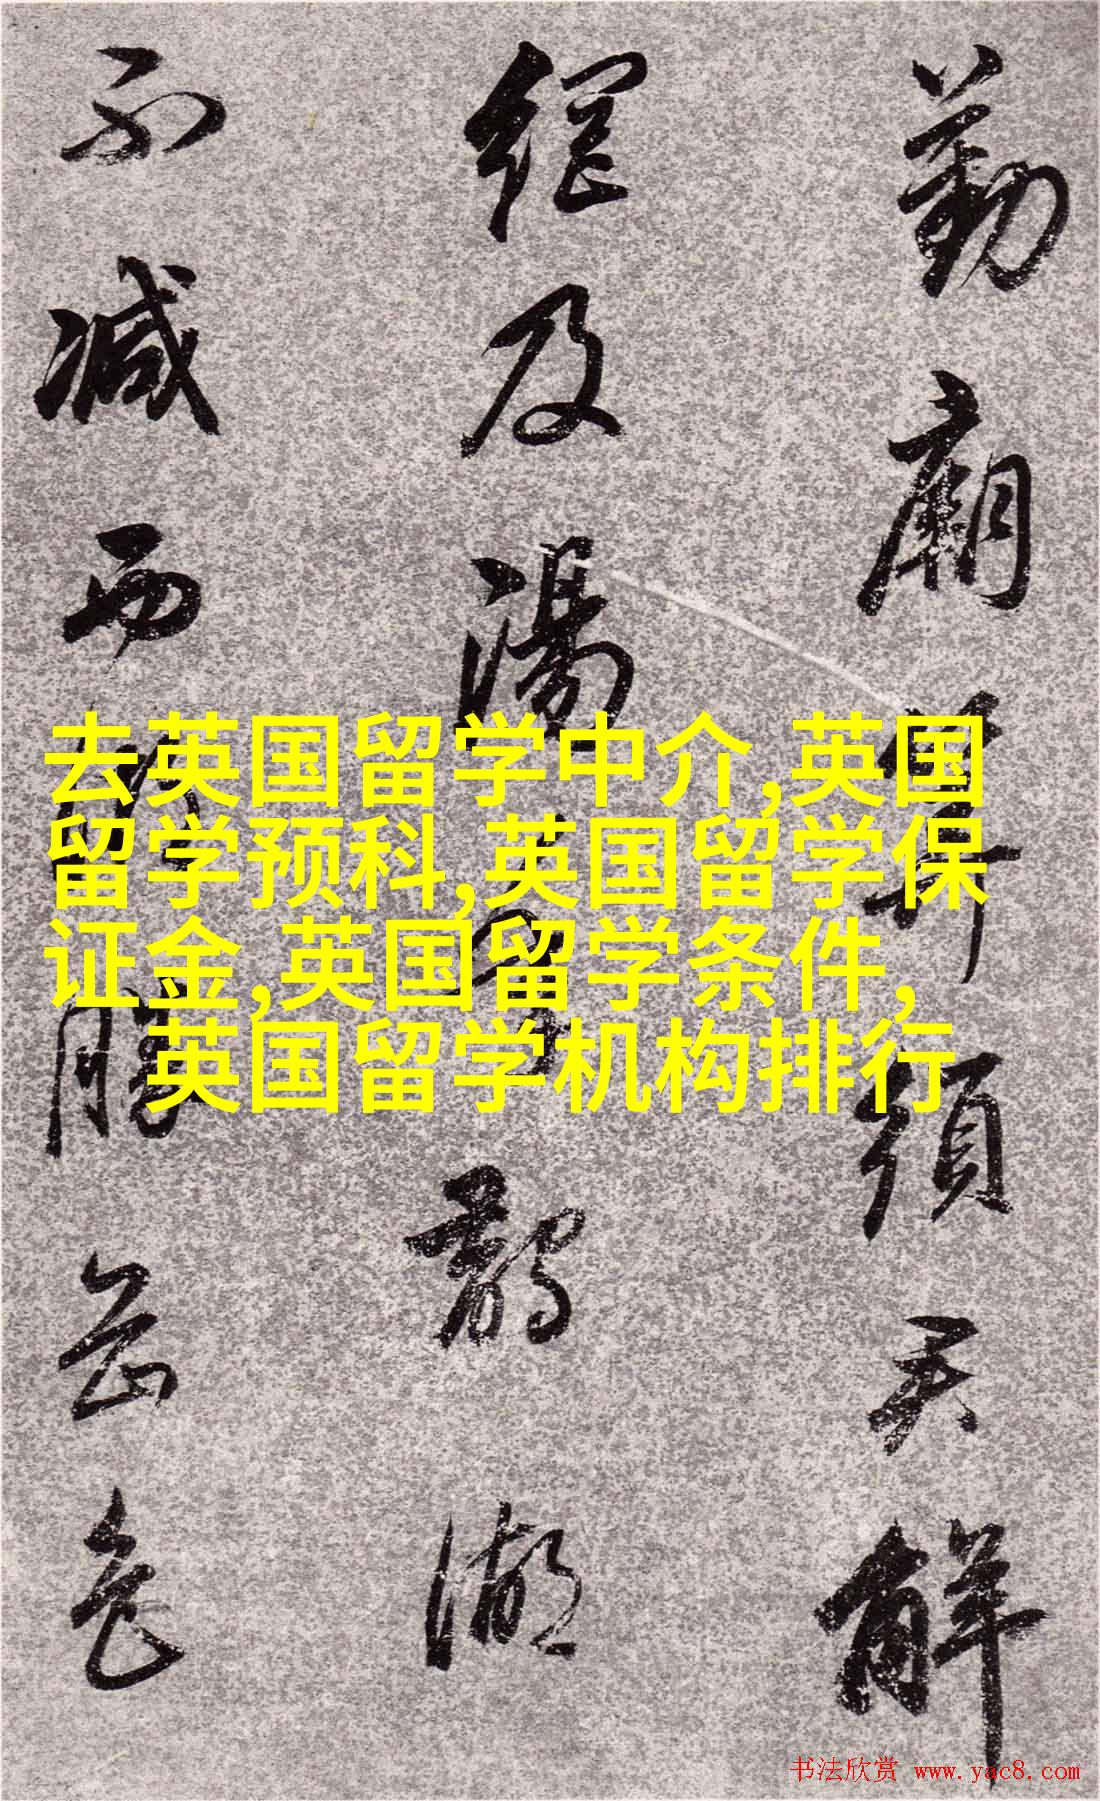 勤廟算領天解
網及湯
鵲湖
不減西
勝岳色
去英国留学中介,英国
留学预科,英国留学保
证金,英国留学条件，
英国留学机构排行
书法欣赏 www.yac8.com